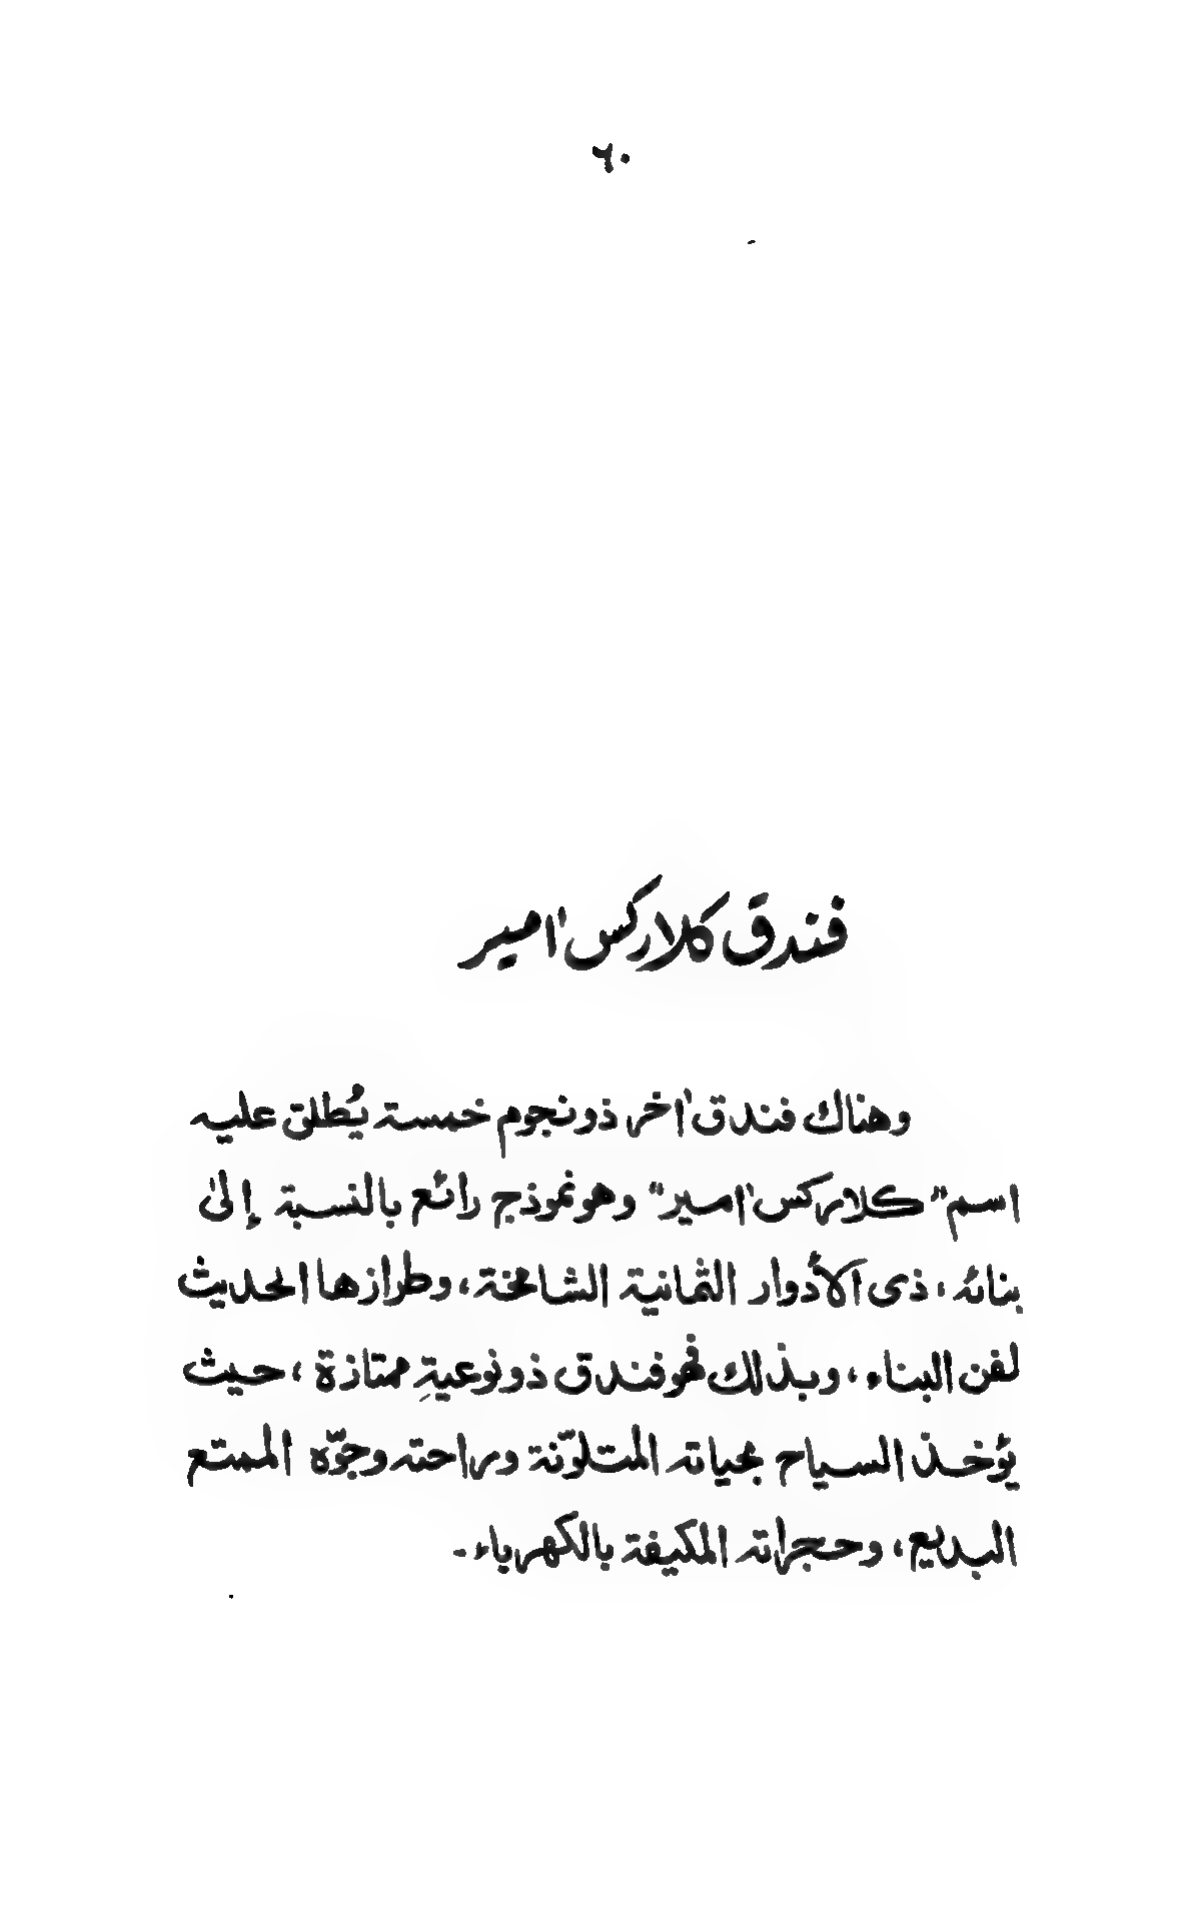 ٦٠
فندق كلاركس اٰمير
وهناك فندق اٰخر ذو نجوم خمسة يُطلق عليه
اسم "كلاركس اٰمير" وهو نموذج رائع بالنسبة إلىٰ
بنائه، ذى الأدوار الثمانية الشامخة، وطرازها الحديث
لفن البناء، وبذلك فهو فندق ذو نوعيةٍ ممتازة، حيث
يؤخذ السياح بحياته المتلوّنة وراحته وجوّه الممتع
البديع، وحجراته المكيفة بالكهرباء۔